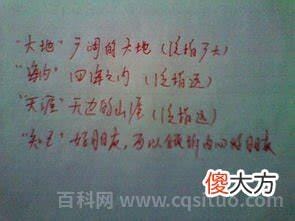 "大地" 广阔的大地（泛指多大）
"海内" 四海之内（泛指远）
"天涯" 天边的山涯（泛指远）
"知己" 好朋友，可以倾诉内心的朋友
傻大方
百科网 www.cqsituo.com